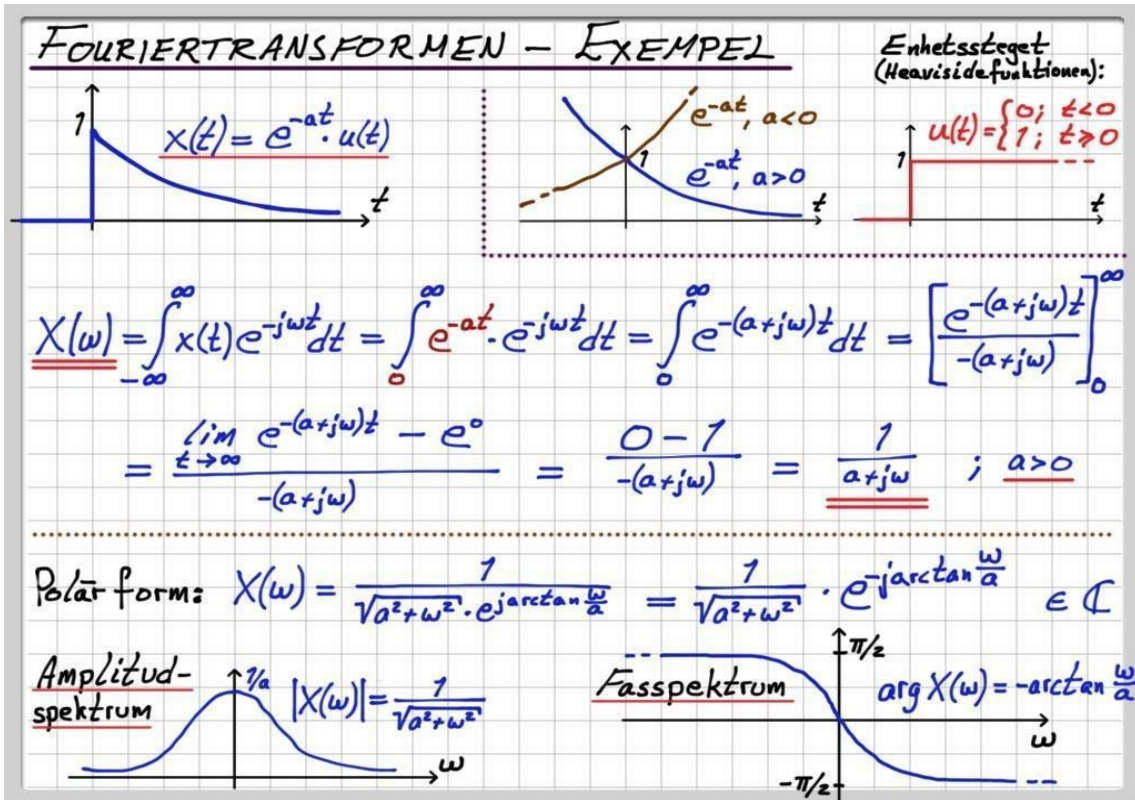 FOURIERTRANSFORMEN – EXEMPEL
Enhetssteget
(Heavisidefunktionen):
1
x(t) = e^{-at} · u(t)
t
e^{-at}, a<0
1
e^{-at}, a>0
t
u(t) = {0; t<0
1; t≥0
1
t
X(ω) = ∫_{-∞}^{∞} x(t) e^{-jωt} dt = ∫_{0}^{∞} e^{-at} · e^{-jωt} dt = ∫_{0}^{∞} e^{-(a+jω)t} dt = [e^{-(a+jω)t} / -(a+jω)]_{0}^{∞}
= (lim_{t→∞} e^{-(a+jω)t} – e^0) / -(a+jω) = (0 – 1) / -(a+jω) = 1 / (a+jω) ; a>0
Polär form: X(ω) = 1 / (√(a²+ω²) · e^{j arctan ω/a}) = 1 / √(a²+ω²) · e^{-j arctan ω/a} ∈ ℂ
Amplitud-
spektrum
1/a
|X(ω)| = 1 / √(a²+ω²)
ω
Fasspektrum
π/2
arg X(ω) = -arctan ω/a
ω
-π/2